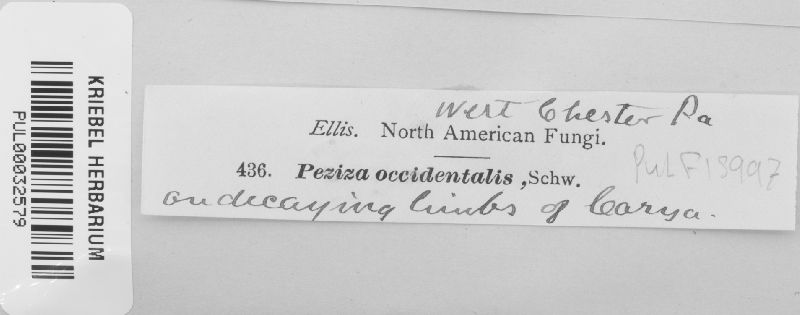 KRIEBEL HERBARIUM
PUL00032579
West Chester Pa
Ellis. North American Fungi.
436. Peziza occidentalis, Schw.
PUL F13997
on decaying limbs of Carya.